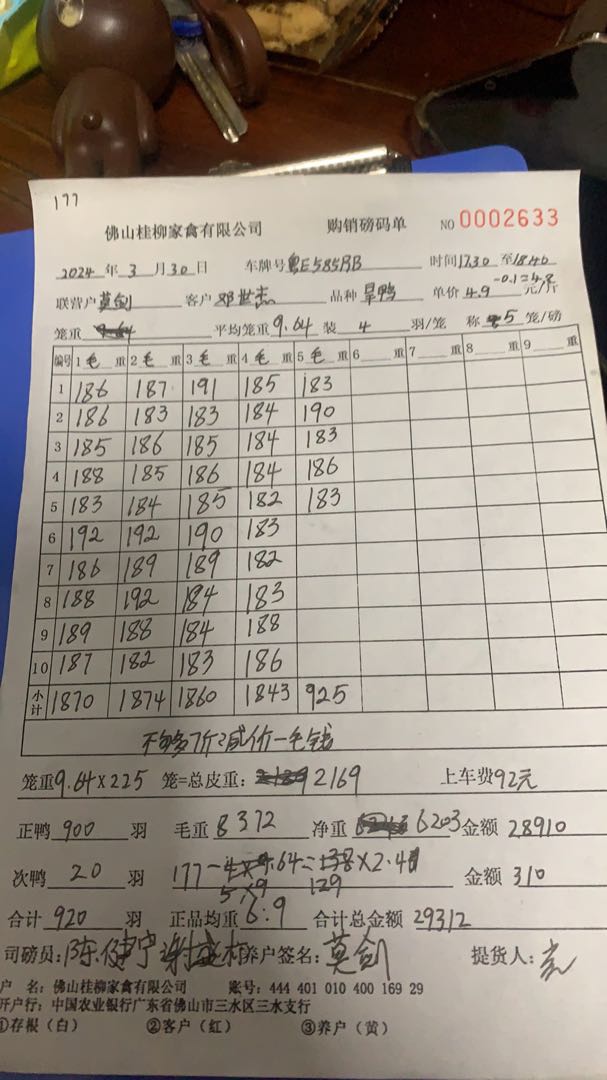 177
佛山桂柳家禽有限公司 购销磅码单 NO 0002633
2024年3月30日 车牌号粤E585RB 时间1730至1840
联营户莫剑 客户邓世杰 品种旱鸭 单价4.9-0.1=4.8元/斤
笼重 平均笼重9.64装4羽/笼 称5笼/磅
编号 1毛重 2毛重 3毛重 4毛重 5毛重 6重 7重 8重 9重
1 186 187 191 185 183
2 186 183 183 184 190
3 185 186 185 184 183
4 188 185 186 184 186
5 183 184 185 182 183
6 192 192 190 183
7 186 189 189 182
8 188 192 184 183
9 189 188 184 188
10 187 182 183 186
小计 1870 1874 1860 1843 925
不够7斤减价一毛钱
笼重9.64×225笼=总皮重:2169 上车费92元
正鸭900羽 毛重8372 净重6203 金额28910
次鸭20羽 177- 金额310
129
合计920羽 正品均重6.9 合计总金额29312
司磅员:陈健宁 养户签名:莫剑 提货人:
户 名:佛山桂柳家禽有限公司 账号:444 401 010 400 169 29
开户行:中国农业银行广东省佛山市三水区三水支行
①存根(白) ②客户(红) ③养户(黄)